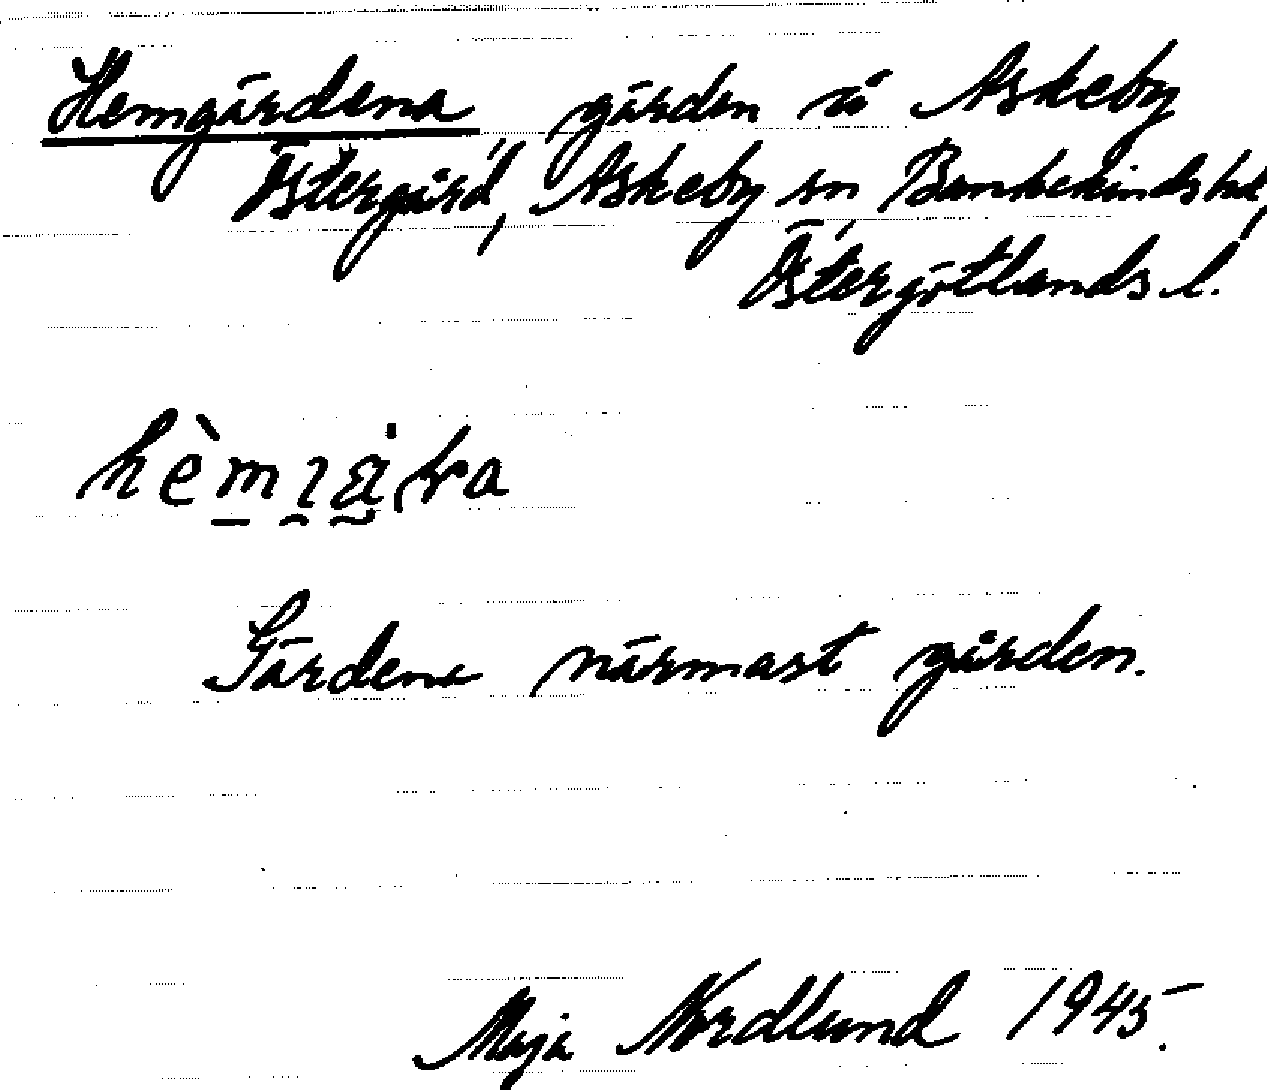 Hemgärdena gärden å Askeby
Östergård, Askeby sn Bankekinds hd,
Östergötlands l.
Gärdena närmast gården.
Maja Nordlund 1945.